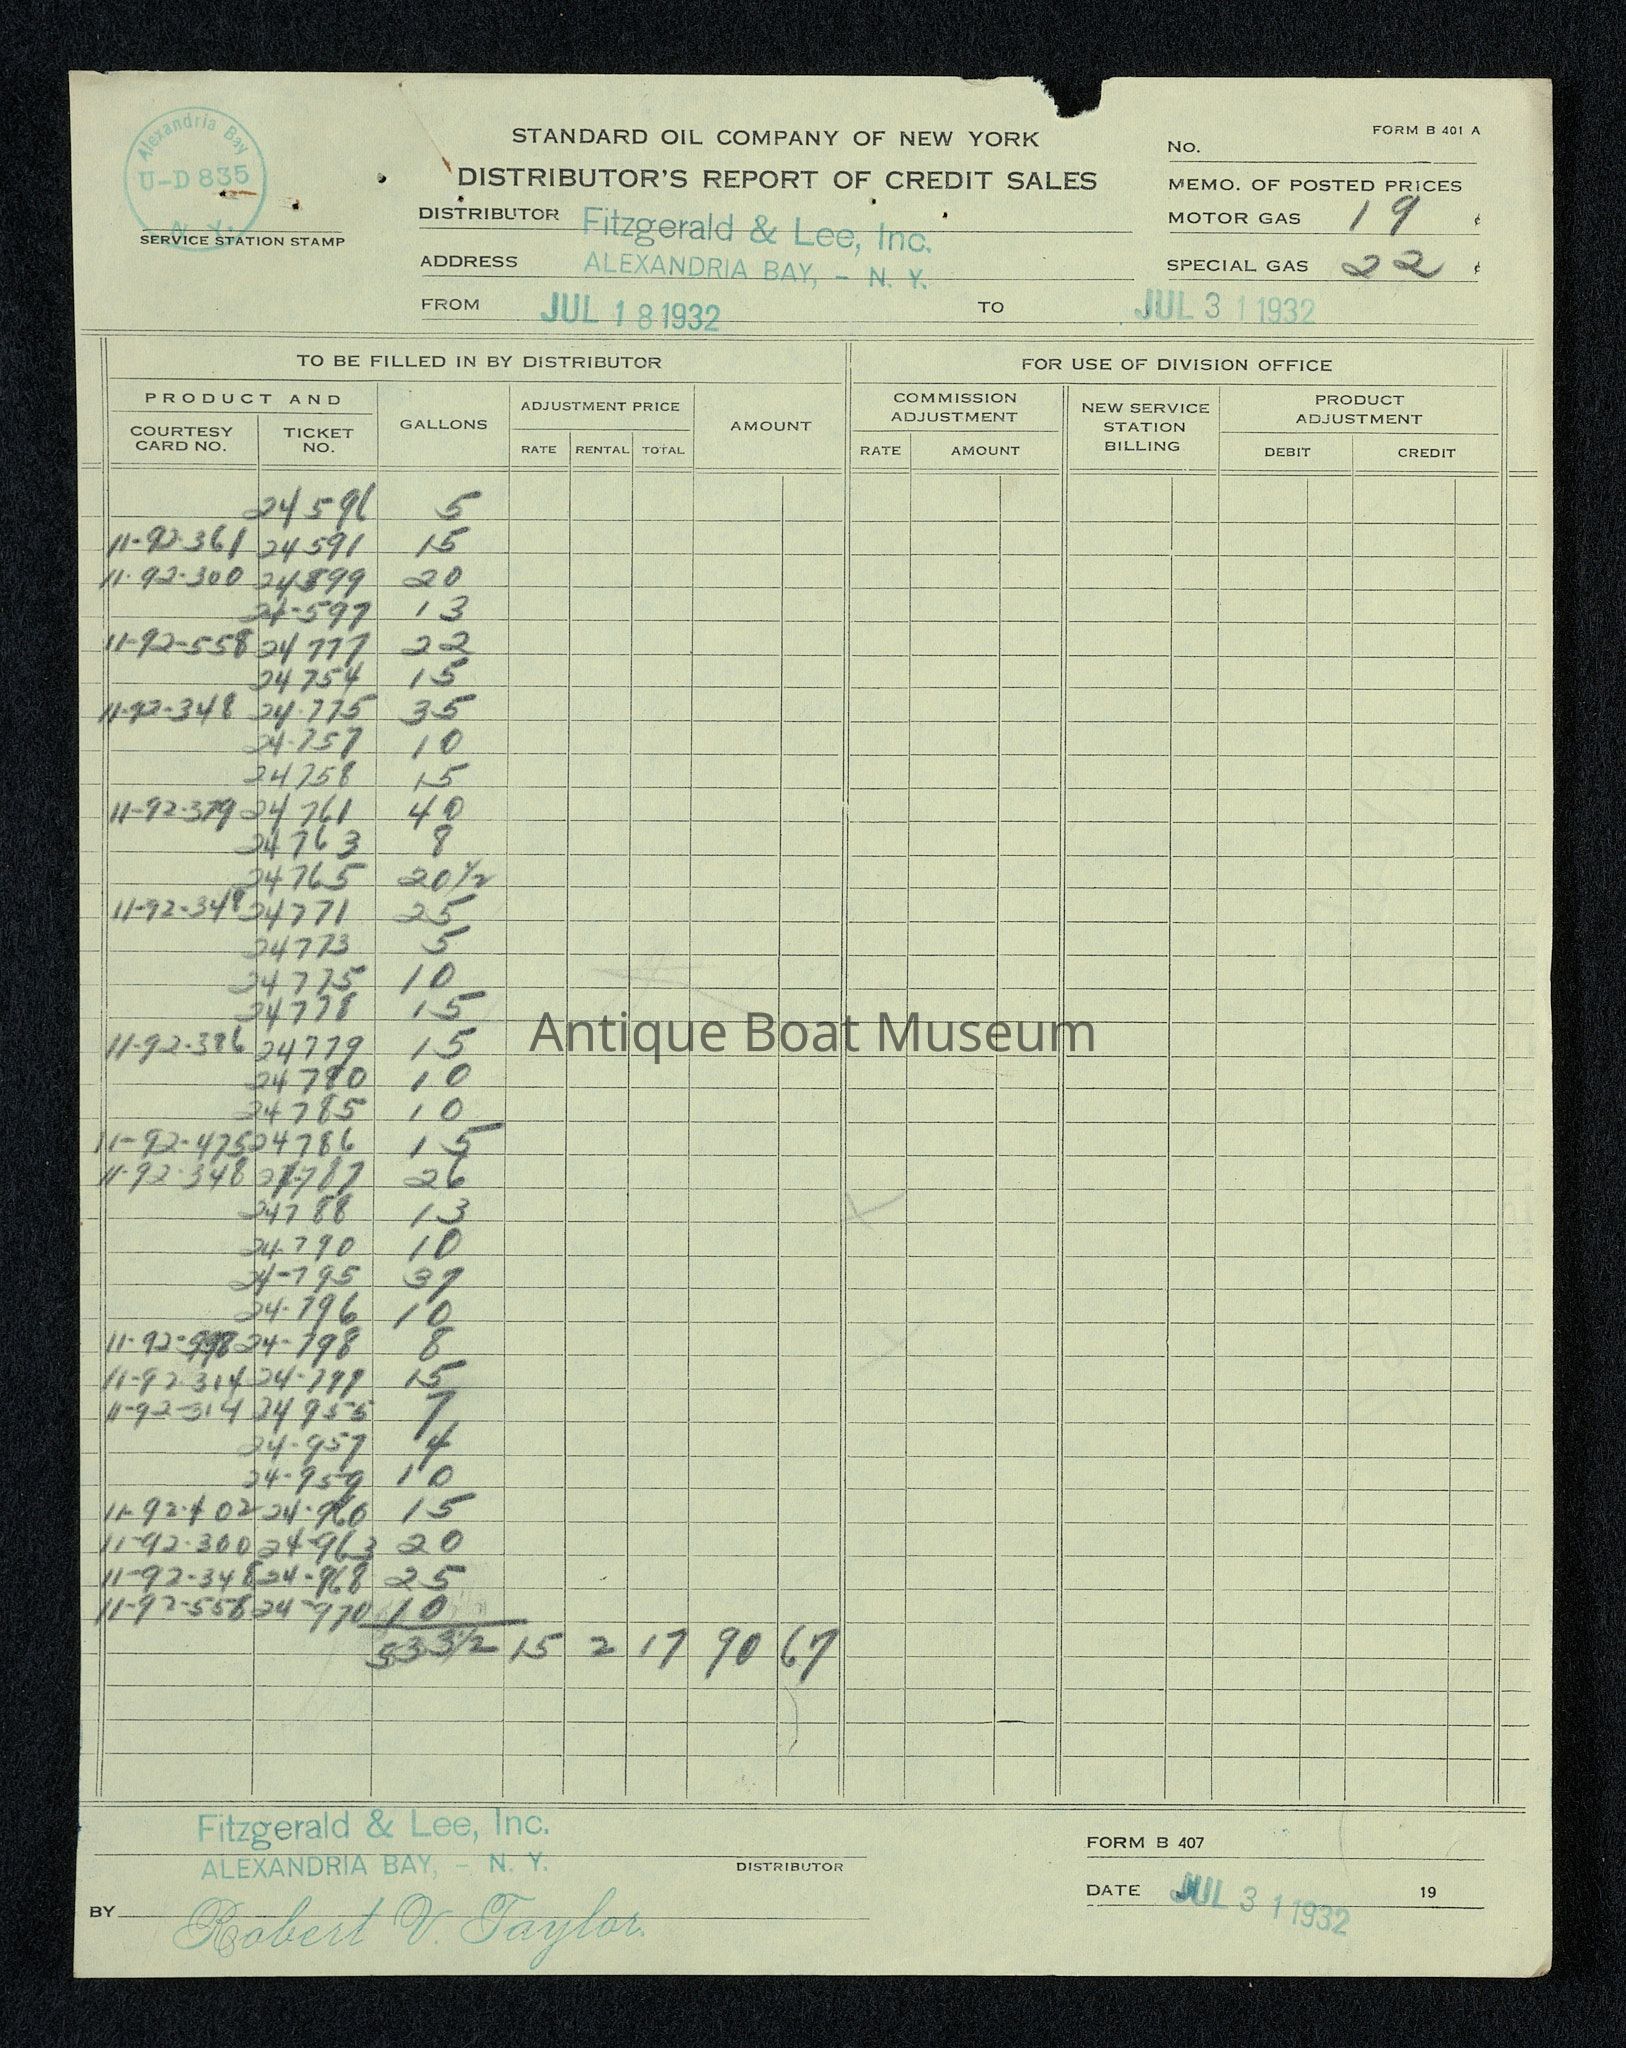 Alexandria Bay
U-D 835
N. Y.
SERVICE STATION STAMP
STANDARD OIL COMPANY OF NEW YORK
DISTRIBUTOR'S REPORT OF CREDIT SALES
DISTRIBUTOR Fitzgerald & Lee, Inc.
ADDRESS ALEXANDRIA BAY, - N. Y.
FROM JUL 18 1932 TO JUL 31 1932
FORM B 401 A
No.
MEMO. OF POSTED PRICES
MOTOR GAS 19 ¢
SPECIAL GAS 22 ¢
TO BE FILLED IN BY DISTRIBUTOR FOR USE OF DIVISION OFFICE
PRODUCT AND
COURTESY CARD NO. TICKET NO. GALLONS ADJUSTMENT PRICE RATE RENTAL TOTAL AMOUNT COMMISSION ADJUSTMENT RATE AMOUNT NEW SERVICE STATION BILLING PRODUCT ADJUSTMENT DEBIT CREDIT
24596 5
11-92-361 24591 15
11-92-300 24899 20
24-597 13
11-92-558 24777 22
24754 15
11-92-348 24-775 35
24-757 10
24758 15
11-92-379 24761 40
24763 8
24765 20 1/2
11-92-348 24771 25
24773 5
24775 10
24778 15
11-92-386 24779 15
24780 10
24785 10
11-92-475 24786 15
11-92-348 24-787 26
24788 13
24-790 10
24-795 37
24-796 10
11-92- 24-798 8
11-92-314 24-799 15
11-92-314 24955 7
24-957 4
24-959 10
11-92-402 24-960 15
11-92-300 24-963 20
11-92-348 24-968 25
11-92-558 24-970 10
533 1/2 15 2 17 90 67
Antique Boat Museum
Fitzgerald & Lee, Inc.
ALEXANDRIA BAY, - N. Y.
DISTRIBUTOR
BY Robert V. Taylor
FORM B 407
DATE JUL 31 1932 19